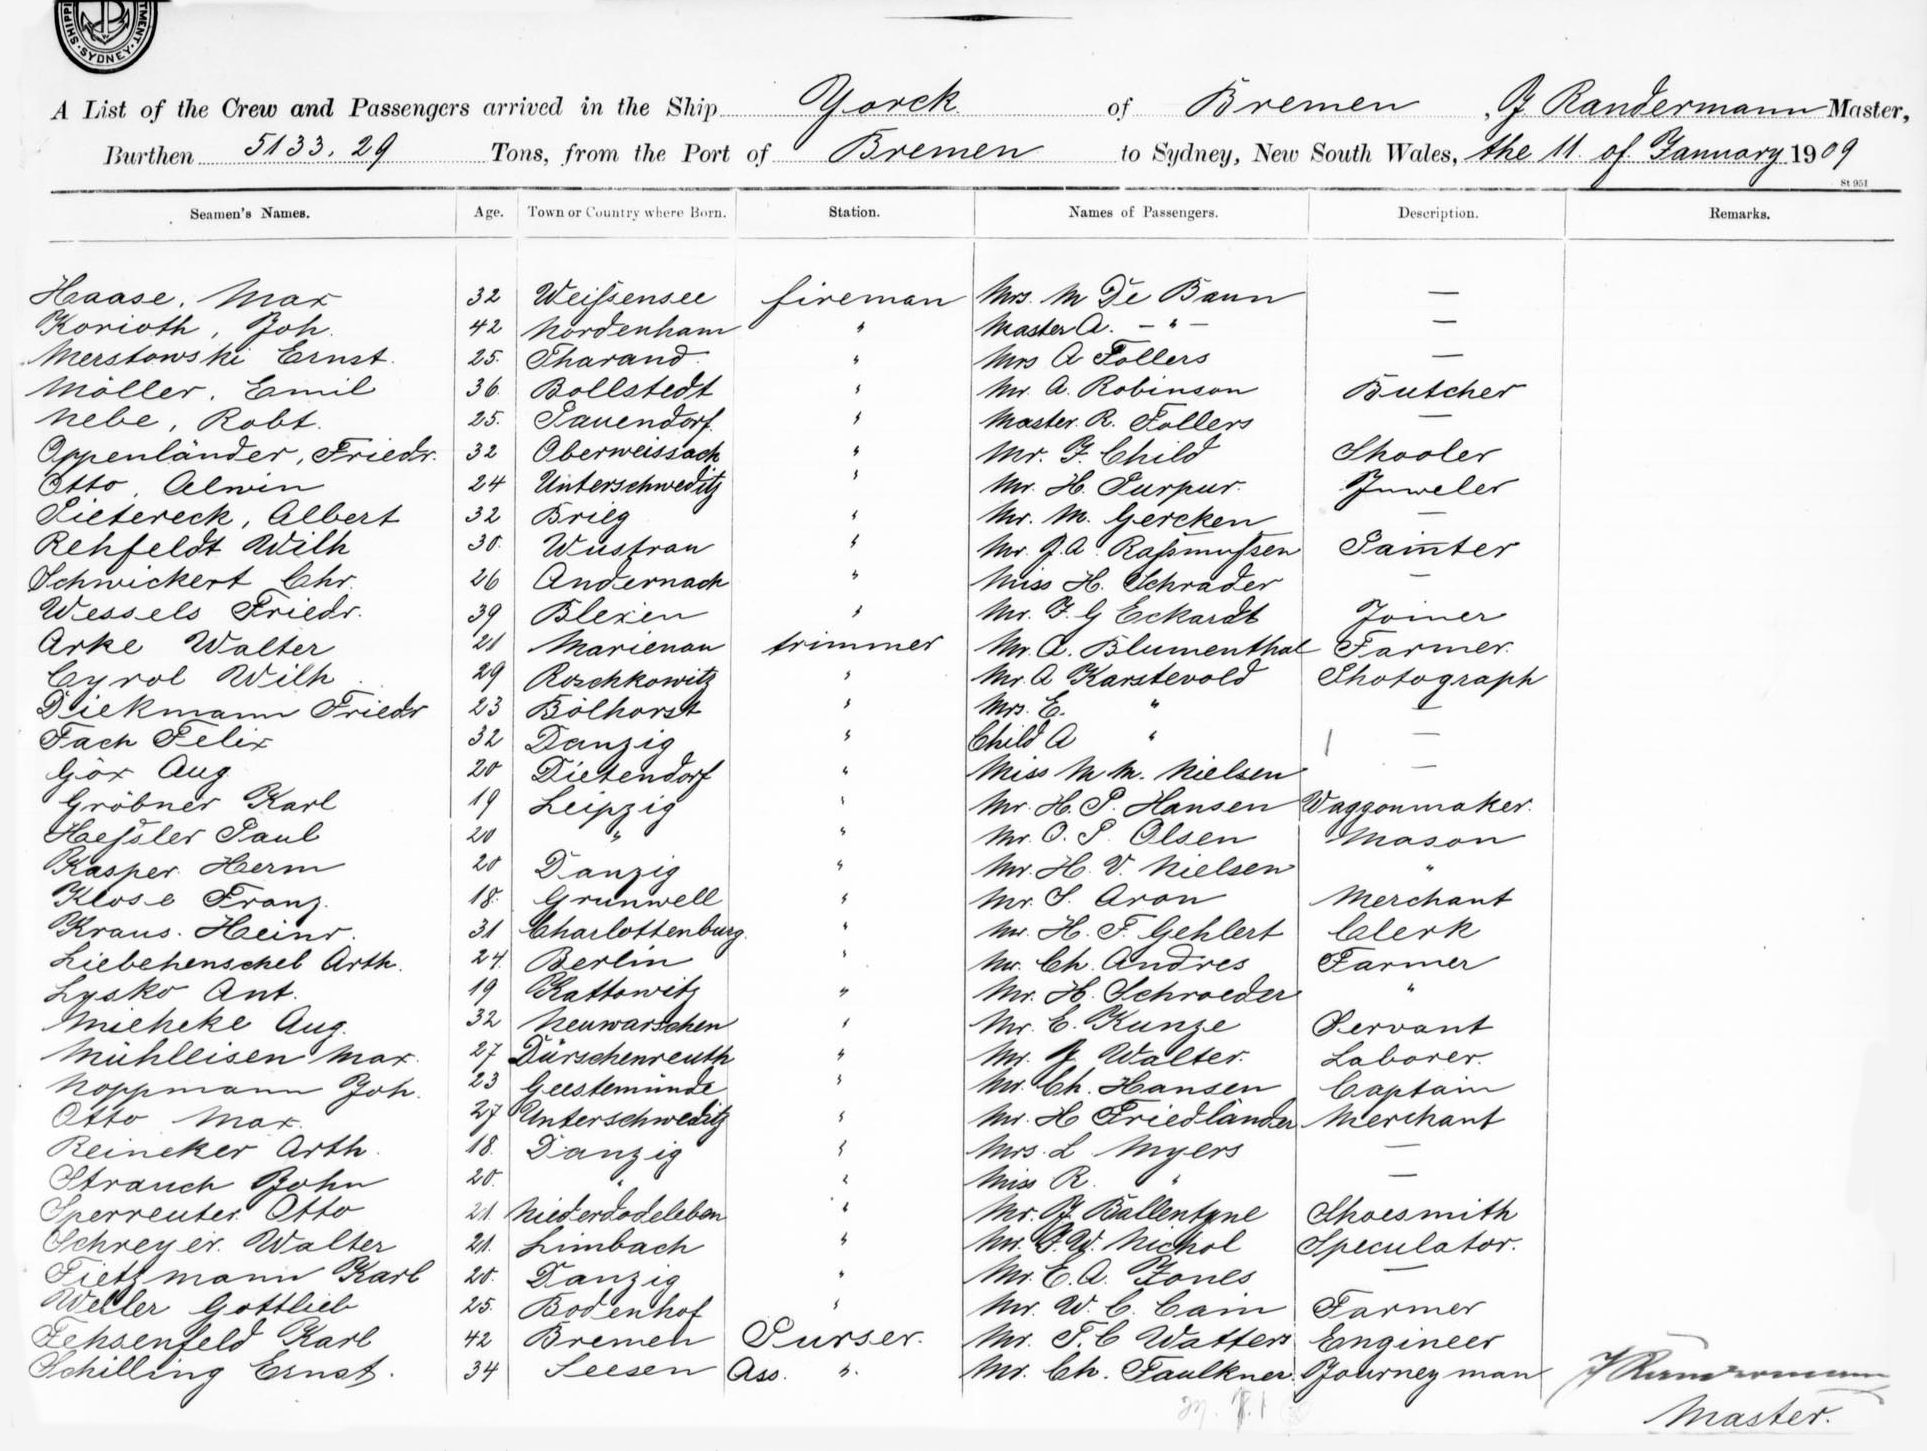 SHIPPI TMENT. SYDNEY
A List of the Crew and Passengers arrived in the Ship Yorck of Bremen, J Randermann Master,
Burthen 5133,29 Tons, from the Port of Bremen to Sydney, New South Wales, the 11 of January 1909
St 951
Seamen's Names. Age. Town or Country where Born. Station. Names of Passengers. Description. Remarks.
Haase, Max 32 Weißensee fireman Mrs. M De Baun —
Korioth, Joh. 42 Nordenham " Master A. — " — —
Merstowski Ernst. 25. Tharand " Mrs A Follers —
Möller, Emil 36. Bollstedt " Mr. A. Robinson Butcher
Nebe, Robt. 25. Pauendorf. " Master. R. Follers —
Oppenländer, Friedr. 32 Oberweissach " Mr. F. Child Shooler
Otto, Alwin 24 Unterschweditz " Mr. H. Purpur. Juweler
Pietereck, Albert 32 Brieg " Mr. M. Gercken —
Rehfeldt Wilh 30. Wustrau " Mr. J. A. Raßmußen Painter
Schwickert Chr. 26 Andernach " Miss H. Schrader —
Wessels Friedr. 39 Blexen " Mr. F. G Eckardt Joiner
Arke Walter 21 Marienau trimmer Mr. A. Blumenthal Farmer.
Cyrol Wilh 29 Roschkowitz " Mr. A Karstevold Photograph
Diekmann Friedr 23 Bölhorst " Mrs. E. " —
Fach Felix 32 Danzig " Child A " —
Gör Aug 20 Dietendorf " Miss M M. Nielsen —
Gröbner Karl 19 Leipzig " Mr. H. P. Hansen Waggonmaker.
Heßler Paul 20 " " Mr. O. P. Olsen Mason
Kasper Herm 20 Danzig " Mr. H. V. Nielsen "
Klose Franz. 18. Grunwell " Mr. S. Aron Merchant
Kraus. Heinr. 31 Charlottenburg. " Mr. H. F. Gehlert Clerk
Liebehenschel Arth. 24. Berlin " Mr. Ch. Andres Farmer
Lysko Ant. 19 Kattowitz " Mr. H. Schroeder "
Miehcke Aug. 32 Neuwarschen " Mr. E. Kunze Servant
Mühlleisen Max. 27 Dürschenreuth " Mr. J Walter. Laborer.
Noppmann Joh. 23 Geestemünde " Mr. Ch. Hansen Captain
Otto Max. 27 Unterschweditz " Mr. H Friedländer Merchant
Reineker Arth. 18. Danzig " Mrs. L Myers —
Strauch John 20. " " Miss R. " —
Sperreuter. Otto 21. Niederdodeleben " Mr. J. Ballentyne Shoesmith
Schreyer. Walter 21. Limbach " Mr. F. W. Nichol Speculator.
Tietzmann Karl 20. Danzig " Mr. E. A. Jones —
Weller Gottlieb 25. Bodenhof " Mr. W. C. Cain Farmer
Fehsenfeld Karl 42 Bremen Purser. Mr. T. C Watters Engineer
Schilling Ernst. 34 Seesen Ass. ". Mr. Ch. Faulkner. Journeyman
J Randermann
Master.